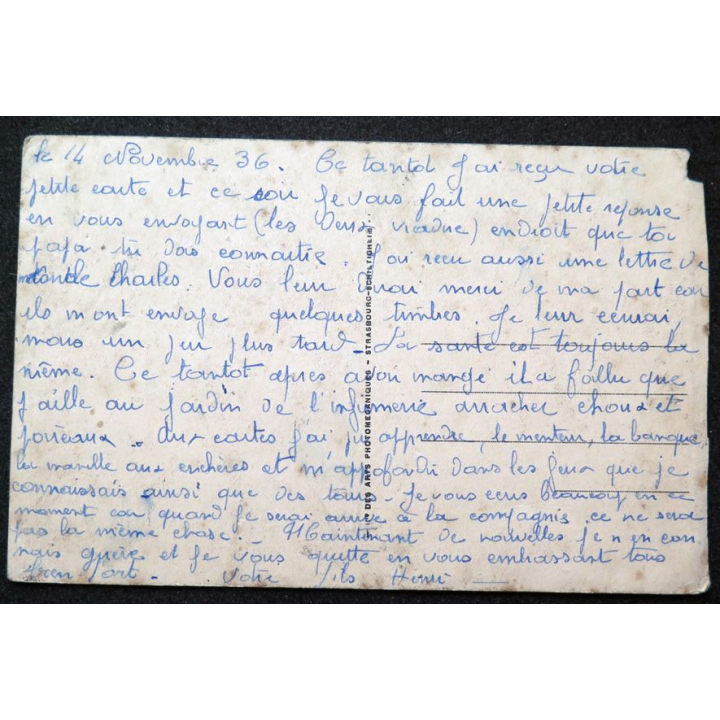 le 14 Novembre 36. Ce tantot j'ai reçu votre
petite carte et ce soir je vous fait une petite reponse
en vous envoyant (les deux viaduc) endroit que toi
papa tu dois connaitre. J'ai reçu aussi une lettre de
l'oncle Charles. Vous leur direz merci de ma part car
ils m'ont envoyé quelques timbres. Je leur ecrirai
mais un peu plus tard. La santé est toujours la
même. Ce tantot apres avoir mangé il a fallu que
j'aille au jardin de l'infirmerie arracher choux et
poireaux. Aux cartes j'ai pu apprendre, le menteur, la banque,
la manille aux enchères et m'approfondir dans les jeux que je
connaissais ainsi que des tours. Je vous ecris beaucoup en ce
moment car quand je serai arrivé à la compagnie ce ne sera
pas la même chose. Maintenant de nouvelles je n'en con
nais guère et je vous quitte en vous embrassant tous
bien fort. Votre fils Henri
Cie DES ARTS PHOTOMECANIQUES - STRASBOURG-SCHILTIGHEIM